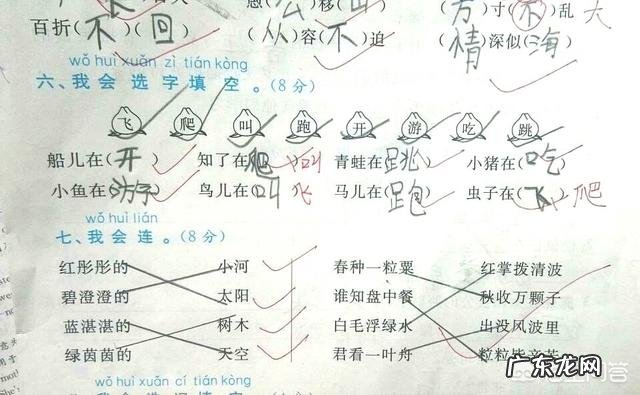 愚(公)移(山) (方)寸(不)乱
百折(不)(回) (从)容(不)迫 (情)深似(海)
wǒ huì xuǎn zì tián kòng
六、我会选字填空。(8分)
飞 爬 叫 跑 开 游 吃 跳
船儿在(开) 知了在(爬)叫 青蛙在(跳) 小猪在(吃)
小鱼在(游) 鸟儿在(叫)飞 马儿在(跑) 虫子在(飞)爬
wǒ huì lián
七、我会连。(8分)
红彤彤的 小河 春种一粒粟 红掌拨清波
碧澄澄的 太阳 谁知盘中餐 秋收万颗子
蓝湛湛的 树木 白毛浮绿水 出没风波里
绿茵茵的 天空 君看一叶舟 粒粒皆辛苦
wǒ huì xuǎn cí tián kòng
广东龙网